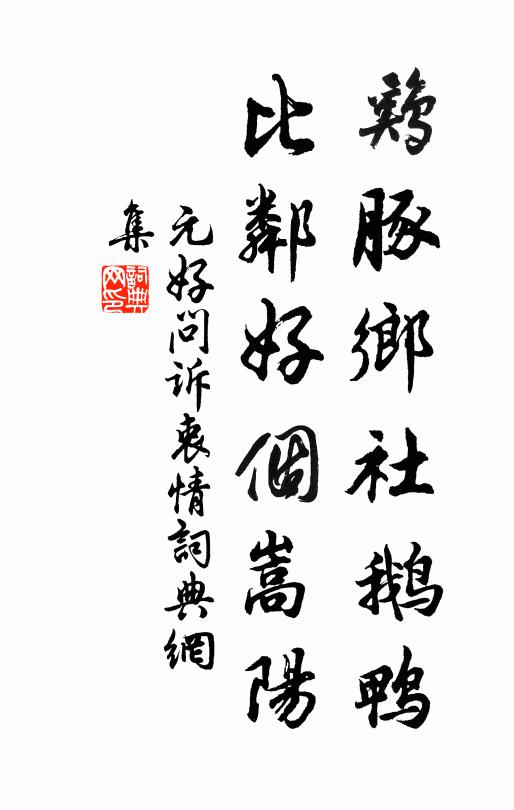 鷄豚鄉社鵝鴨
比鄰好個嵩陽
元好問訴衷情詞典網
集
詞典
网印